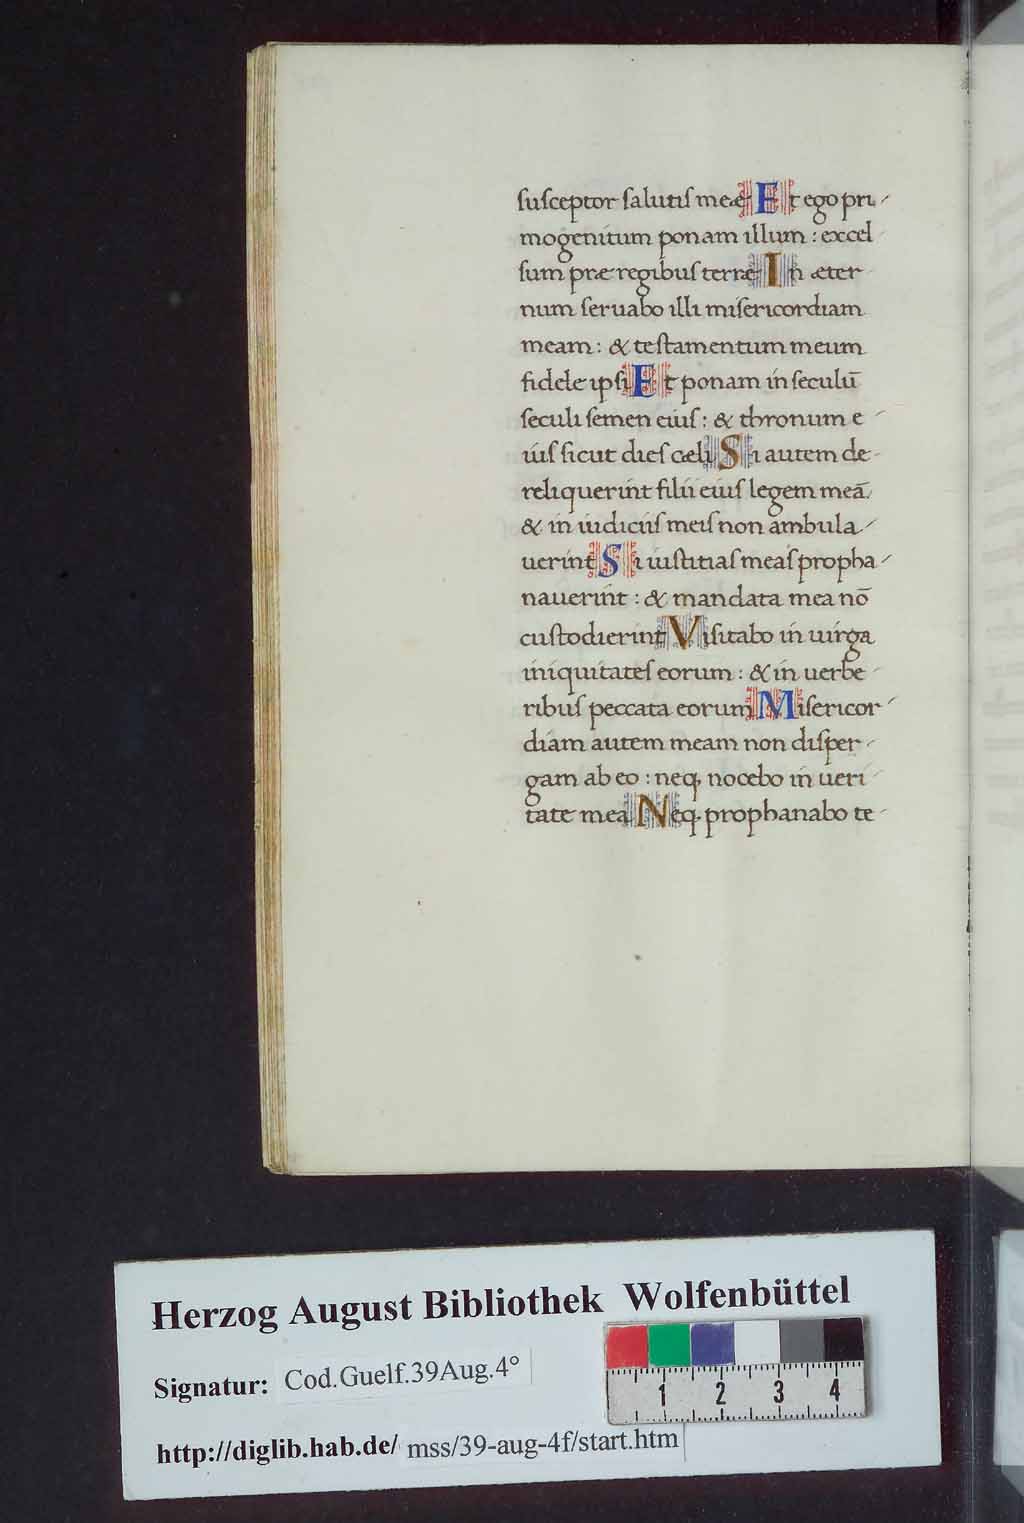 suſceptor ſalutiſ meæ Et ego pri-
mogenitum ponam illum : excel-
ſum præ regibuſ terræ In æter-
num ſeruabo illi miſericordiam
meam : & teſtamentum meum
fidele ipſi Et ponam in ſeculū
ſeculi ſemen eiuſ : & thronum e-
iuſ ſicut dieſ cæli Si autem de-
reliquerint filii eiuſ legem meā
& in iudiciiſ meiſ non ambula-
uerint Si iuſtitiaſ meaſ propha-
nauerint : & mandata mea nō
cuſtodierint Viſitabo in uirga
iniquitateſ eorum : & in uerbe-
ribuſ peccata eorum Miſericor-
diam autem meam non diſper-
gam ab eo : neq; nocebo in ueri-
tate mea Neq; prophanabo te-
Herzog August Bibliothek Wolfenbüttel
Signatur: Cod.Guelf.39Aug.4°
http://diglib.hab.de/ mss/39-aug-4f/start.htm
1 2 3 4